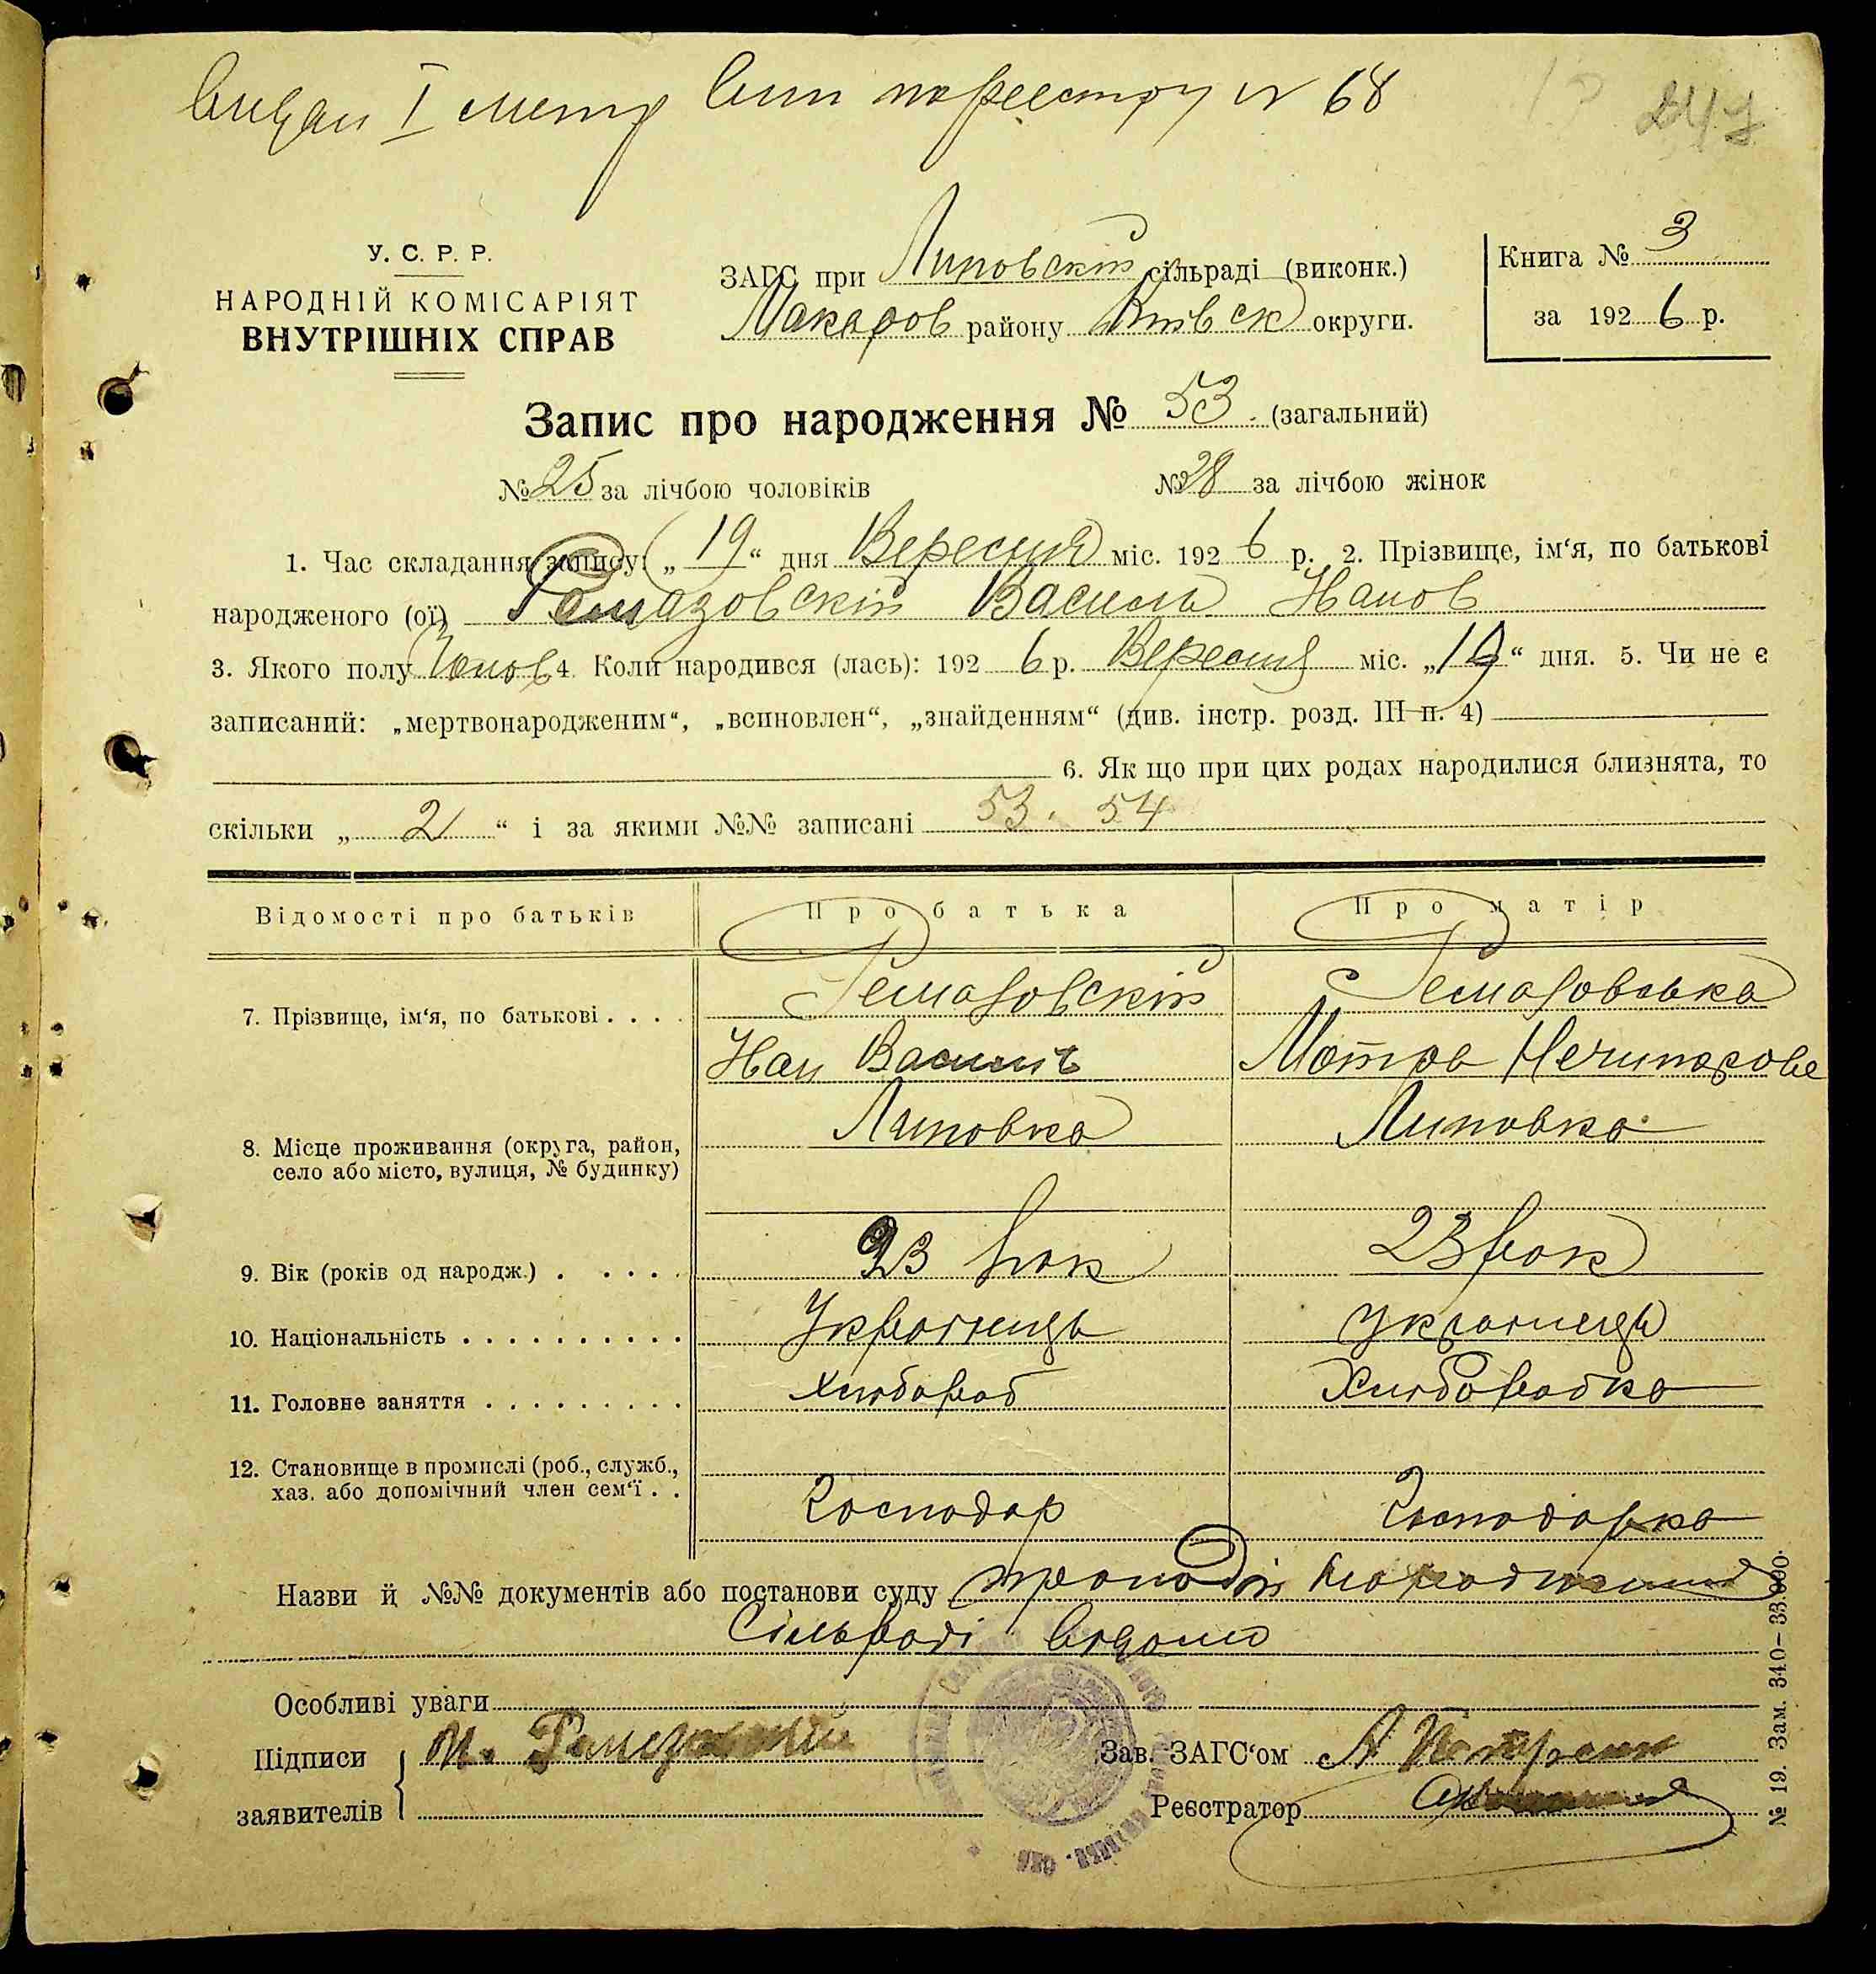 по реестру N 68
247
У. С. Р. Р.
НАРОДНІЙ КОМІСАРІЯТ
ВНУТРІШНІХ СПРАВ
ЗАГС при Липовскій сільраді (виконк.)
Макаров району Київск округи.
Книга № 3
за 1926 р.
Запис про народження № 53. (загальний)
№ 25 за лічбою чоловіків № 28 за лічбою жінок
1. Час складання запису: „19“ дня Вересня міс. 1926 р. 2. Прізвище, ім‘я, по батькові
народженого (ої) Ремазовскій Василь Иванов
3. Якого полу Чолов 4. Коли народився (лась): 1926 р. Вересня міс. „19“ дня. 5. Чи не є
записаний: „мертвонародженим“, „всиновлен“, „знайденням“ (див. інстр. розд. III п. 4)
6. Як що при цих родах народилися близнята, то
скільки „2“ і за якими №№ записані 53. 54
Відомості про батьків Про батька Про матір
7. Прізвище, ім‘я, по батькові . . . . Ремазовскій Ремазовська
Иван Васильів Мотря Нечипорове
8. Місце проживання (округа, район, Липовка Липовка
село або місто, вулиця, № будинку)
9. Вік (років од народж.) . . . . . 23 рок 23 рок
10. Національність . . . . . . . . . . Украінець Украінець
11. Головне заняття . . . . . . . . . Хлібороб Хліборобка
12. Становище в промислі (роб., служб.,
хаз. або допомічний член сем‘ї . . Господар Господарка
Назви й №№ документів або постанови суду
Сільраді відомо
Особливі уваги
Підписи
заявителів
Зав. ЗАГС‘ом А Петренк
Реєстратор
№ 19. Зам. 340–33.000.